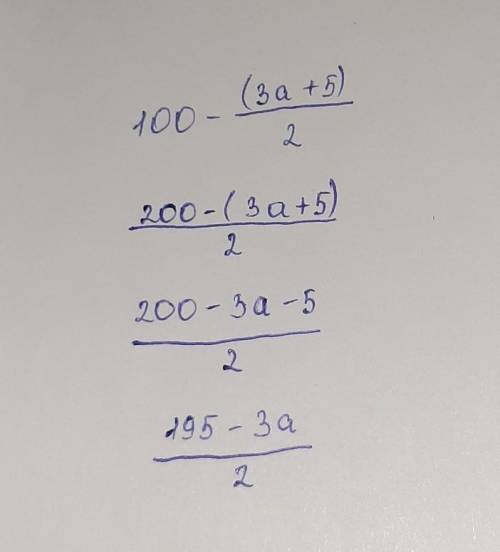 100 - (3a + 5) / 2
200 - (3a + 5) / 2
200 - 3a - 5 / 2
195 - 3a / 2